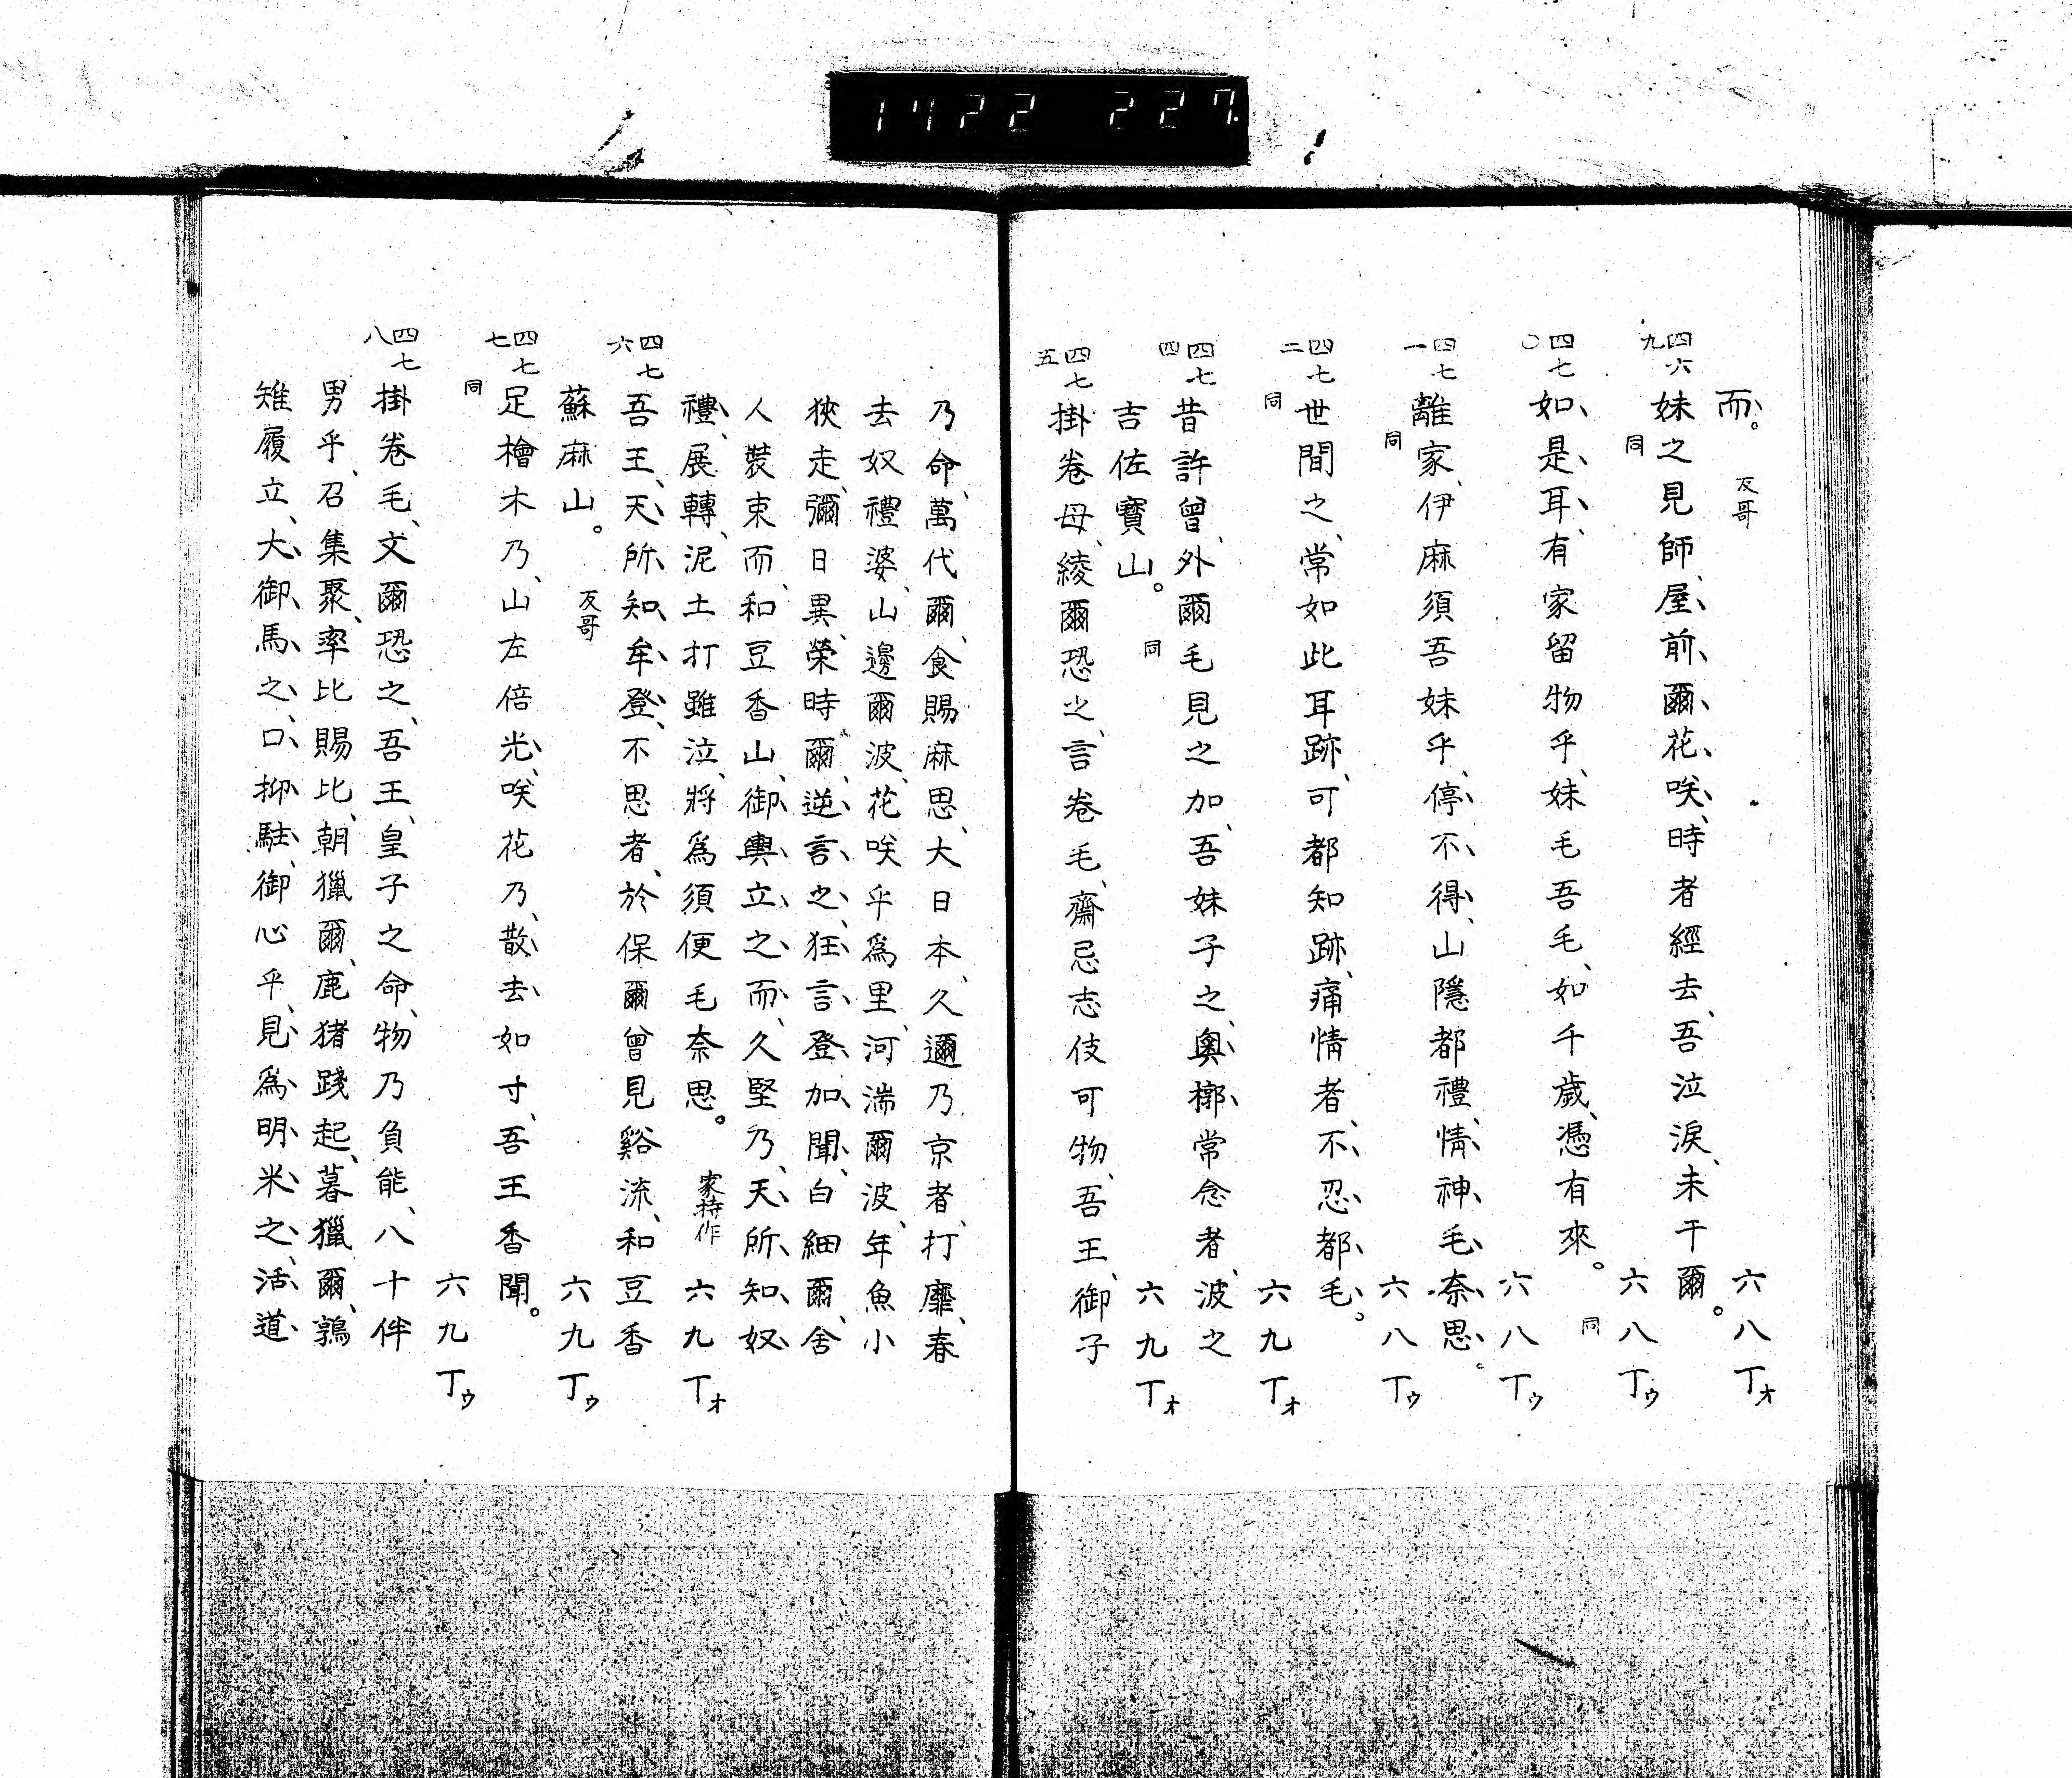 1722 227.
而。 反哥 六八丁オ
四六九 妹之見師、屋、前、爾、花、咲、時者經去、吾泣淚、未干爾。
同 六八丁ウ
四七〇 如、是、耳、有家留物乎、妹毛吾毛、如千歲、憑有來。
同 六八丁ウ
四七一 離家、伊麻須吾妹乎、停、不、得、山隱都禮、情、神、毛、奈、思、。
同 六八丁ウ
四七二 世間之、常如此耳跡、可都知跡、痛情者、不、忍、都、毛、。
同 六九丁オ
四七四 昔許曾、外爾毛見之加、吾妹子之、奧、槨、常念者、波之
吉佐寶山。 同 六九丁オ
四七五 掛卷母、綾爾恐之、言卷毛、齋忌志伎可物、吾王、御子
乃命、萬代爾、食賜麻思、大日本、久邇乃京者、打靡、春
去奴禮婆、山邊爾波、花咲乎爲里、河湍爾波、年魚小
狹走、彌日異、榮時爾、逆、言、之、狂、言、登、加、聞、白細爾、舍
人裝束而、和豆香山、御、輿、立、之、而、久堅乃、天、所、知、奴、
禮、展轉、泥土打雖泣、將爲須便毛奈思。 家持作 六九丁オ
四七六 吾王、天、所、知、牟、登、不思者、於保爾曾見谿流、和豆香
蘇麻山。 反哥 六九丁ウ
四七七 足檜木乃、山左倍光、咲花乃、散、去、如寸、吾王香聞。
同 六九丁ウ
四七八 掛卷毛、文爾恐之、吾王、皇子之命、物乃負能、八十伴
男乎、召集聚、率比賜比、朝獵爾、鹿猪踐起、暮獵爾、鶉
雉履立、大、御、馬、之、口、抑、駐、御心乎、見、爲、明、米、之、活、道、